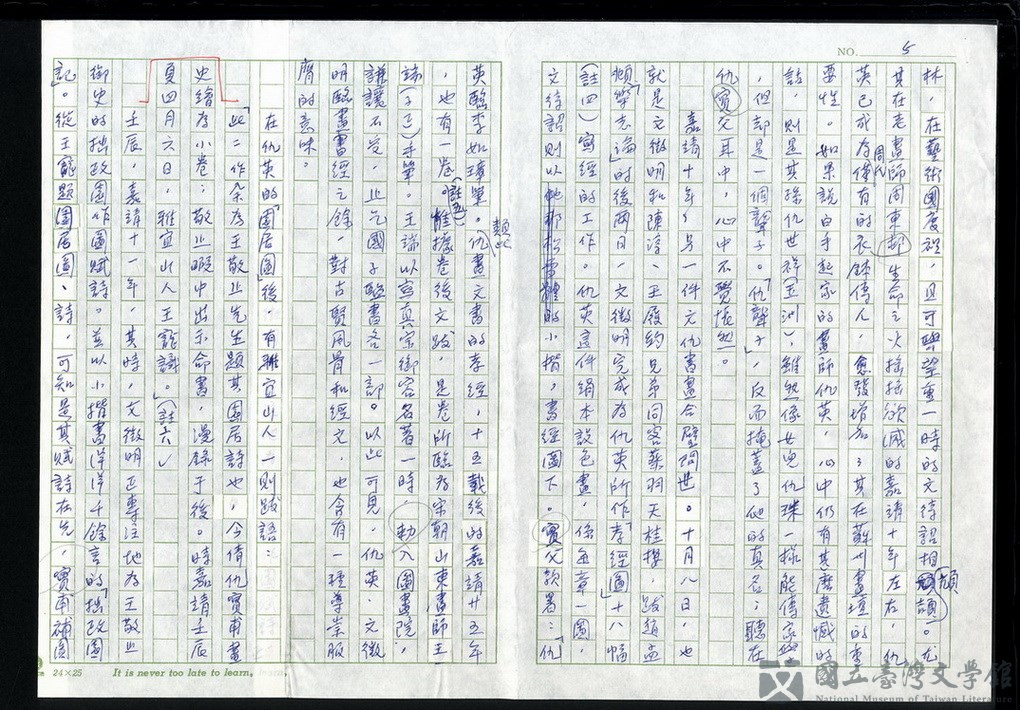 NO. 5
林,在藝術國度裡,且可與望重一時的文待詔相頡頏。尤
其在老畫師周東邨生命之火搖搖欲滅的嘉靖十年左右,仇
英已成為周氏僅有的衣缽傳人,愈發增加了其在蘇州畫壇的重
要性。如果說白手起家的畫師仇英,心中仍有其麼遺憾的
話,則是其孫仇世祥(玉洲),雖然像女兒仇珠一樣能傳家學
,但卻是一個聾子。「仇聾子」,反而掩蓋了他的真名;聽在
仇實父耳中,心中不覺悵然。
嘉靖十年,另一件文仇書畫合璧問世。十月八日,也
就是文徵明和陳淳、王履約兄弟同客藥洲天桂樓,跋趙孟
頫「樂志論」的後兩日,文徵明完成為仇英所作「孝經圖」十八幅
(註四)寫經的工作。仇英這件絹本設色畫,係每章一圖,
文待詔則以的小楷,書經圖下。實父款署:「仇
英臨李如璋筆。」類此仇畫文書的孝經,十五載後的嘉靖廿五年
,也有一卷(註五)。惟據卷後文跋,是卷所臨為宋朝山東畫師王
端(子正)手筆。王端以寫真宗御容名著一時,勅入圖畫院,
謙讓不受,止乞國子監書各一部。以此可見,仇英、文徵
明臨畫書經之餘,對古賢風骨和經文,也含有一種尊崇服
膺的意味。
在仇英的「園居圖」後,有雅宜山人一則跋語:
「此二作余為王敬止先生題其園居詩也,今倩仇實甫畫
史繪為小卷;敬止暇中出示命書,漫錄于後。時嘉靖壬辰
夏四月六日,雅宜山人王寵識。」(註六)
壬辰,嘉靖十一年,其時,文徵明正專注地為王敬止
御史的拙政園作圖賦詩。並以小楷書洋洋千餘言的「拙政園
記」。從王寵題園居圖、詩,可知是其賦詩在先,實甫補圖
24×25 It is never too late to learn.
國立臺灣文學館
National Museum of Taiwan Literature